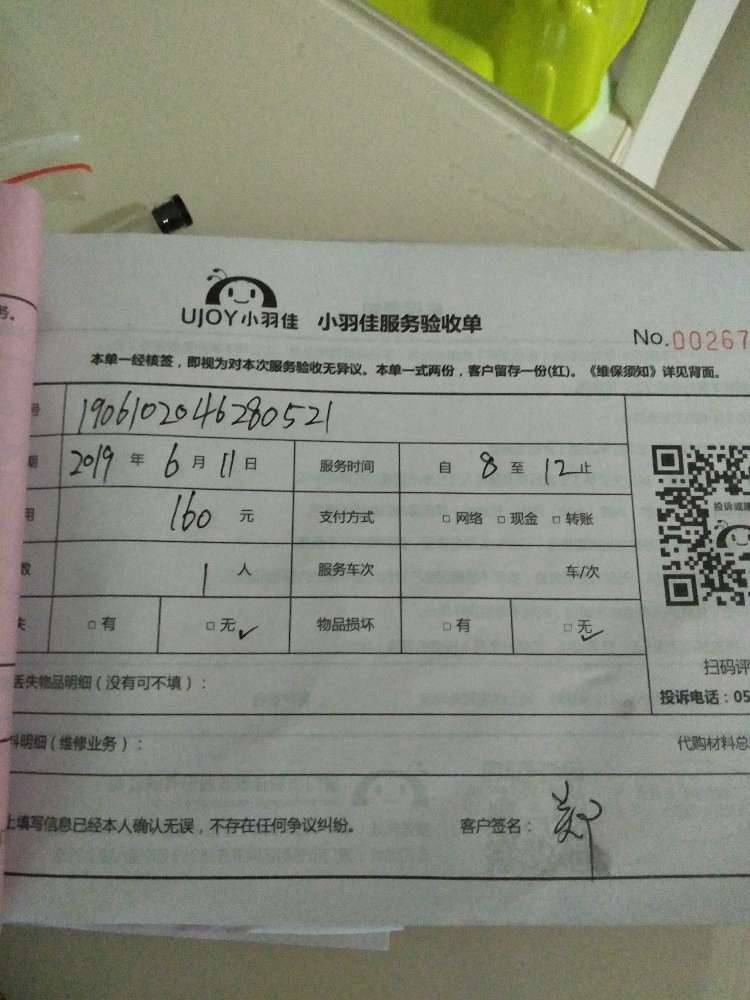 务。
UJOY小羽佳 小羽佳服务验收单
No.00267
本单一经核签，即视为对本次服务验收无异议。本单一式两份，客户留存一份(红)。《维保须知》详见背面。
号 1906102046280521
期 2019 年 6 月 11 日 服务时间 自 8 至 12 止
用 160 元 支付方式 □ 网络 □ 现金 □ 转账
数 1 人 服务车次 车/次
失 □ 有 □ 无✓ 物品损坏 □ 有 □ 无✓
投诉或建
扫码评
投诉电话：05
丢失物品明细（没有可不填）：
料明细（维修业务）： 代购材料总
上填写信息已经本人确认无误，不存在任何争议纠纷。 客户签名： 郑